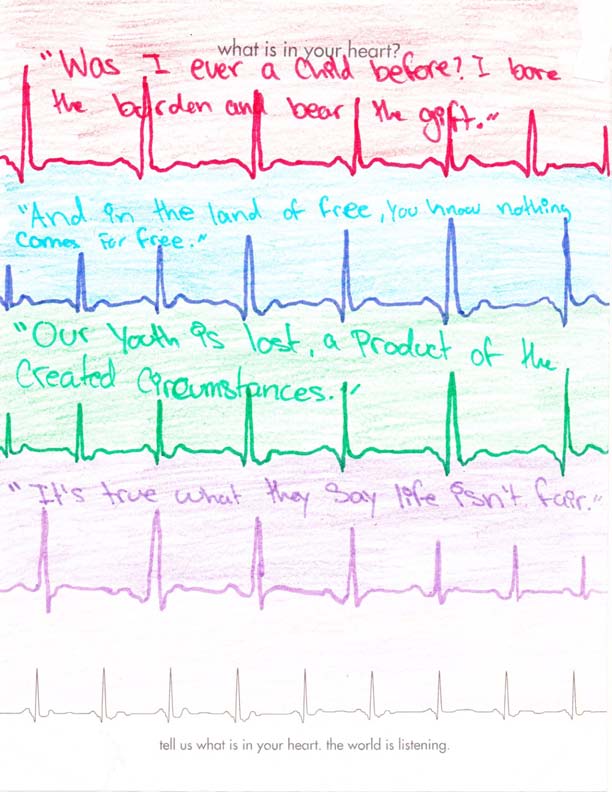 what is in your heart?
"Was I ever a child before? I bore
the burden and bear the gift."
"And in the land of free, you know nothing
comes for free."
"Our Youth is lost, a Product of the
Created Circumstances."
"It's true what they say life isn't fair."
tell us what is in your heart. the world is listening.